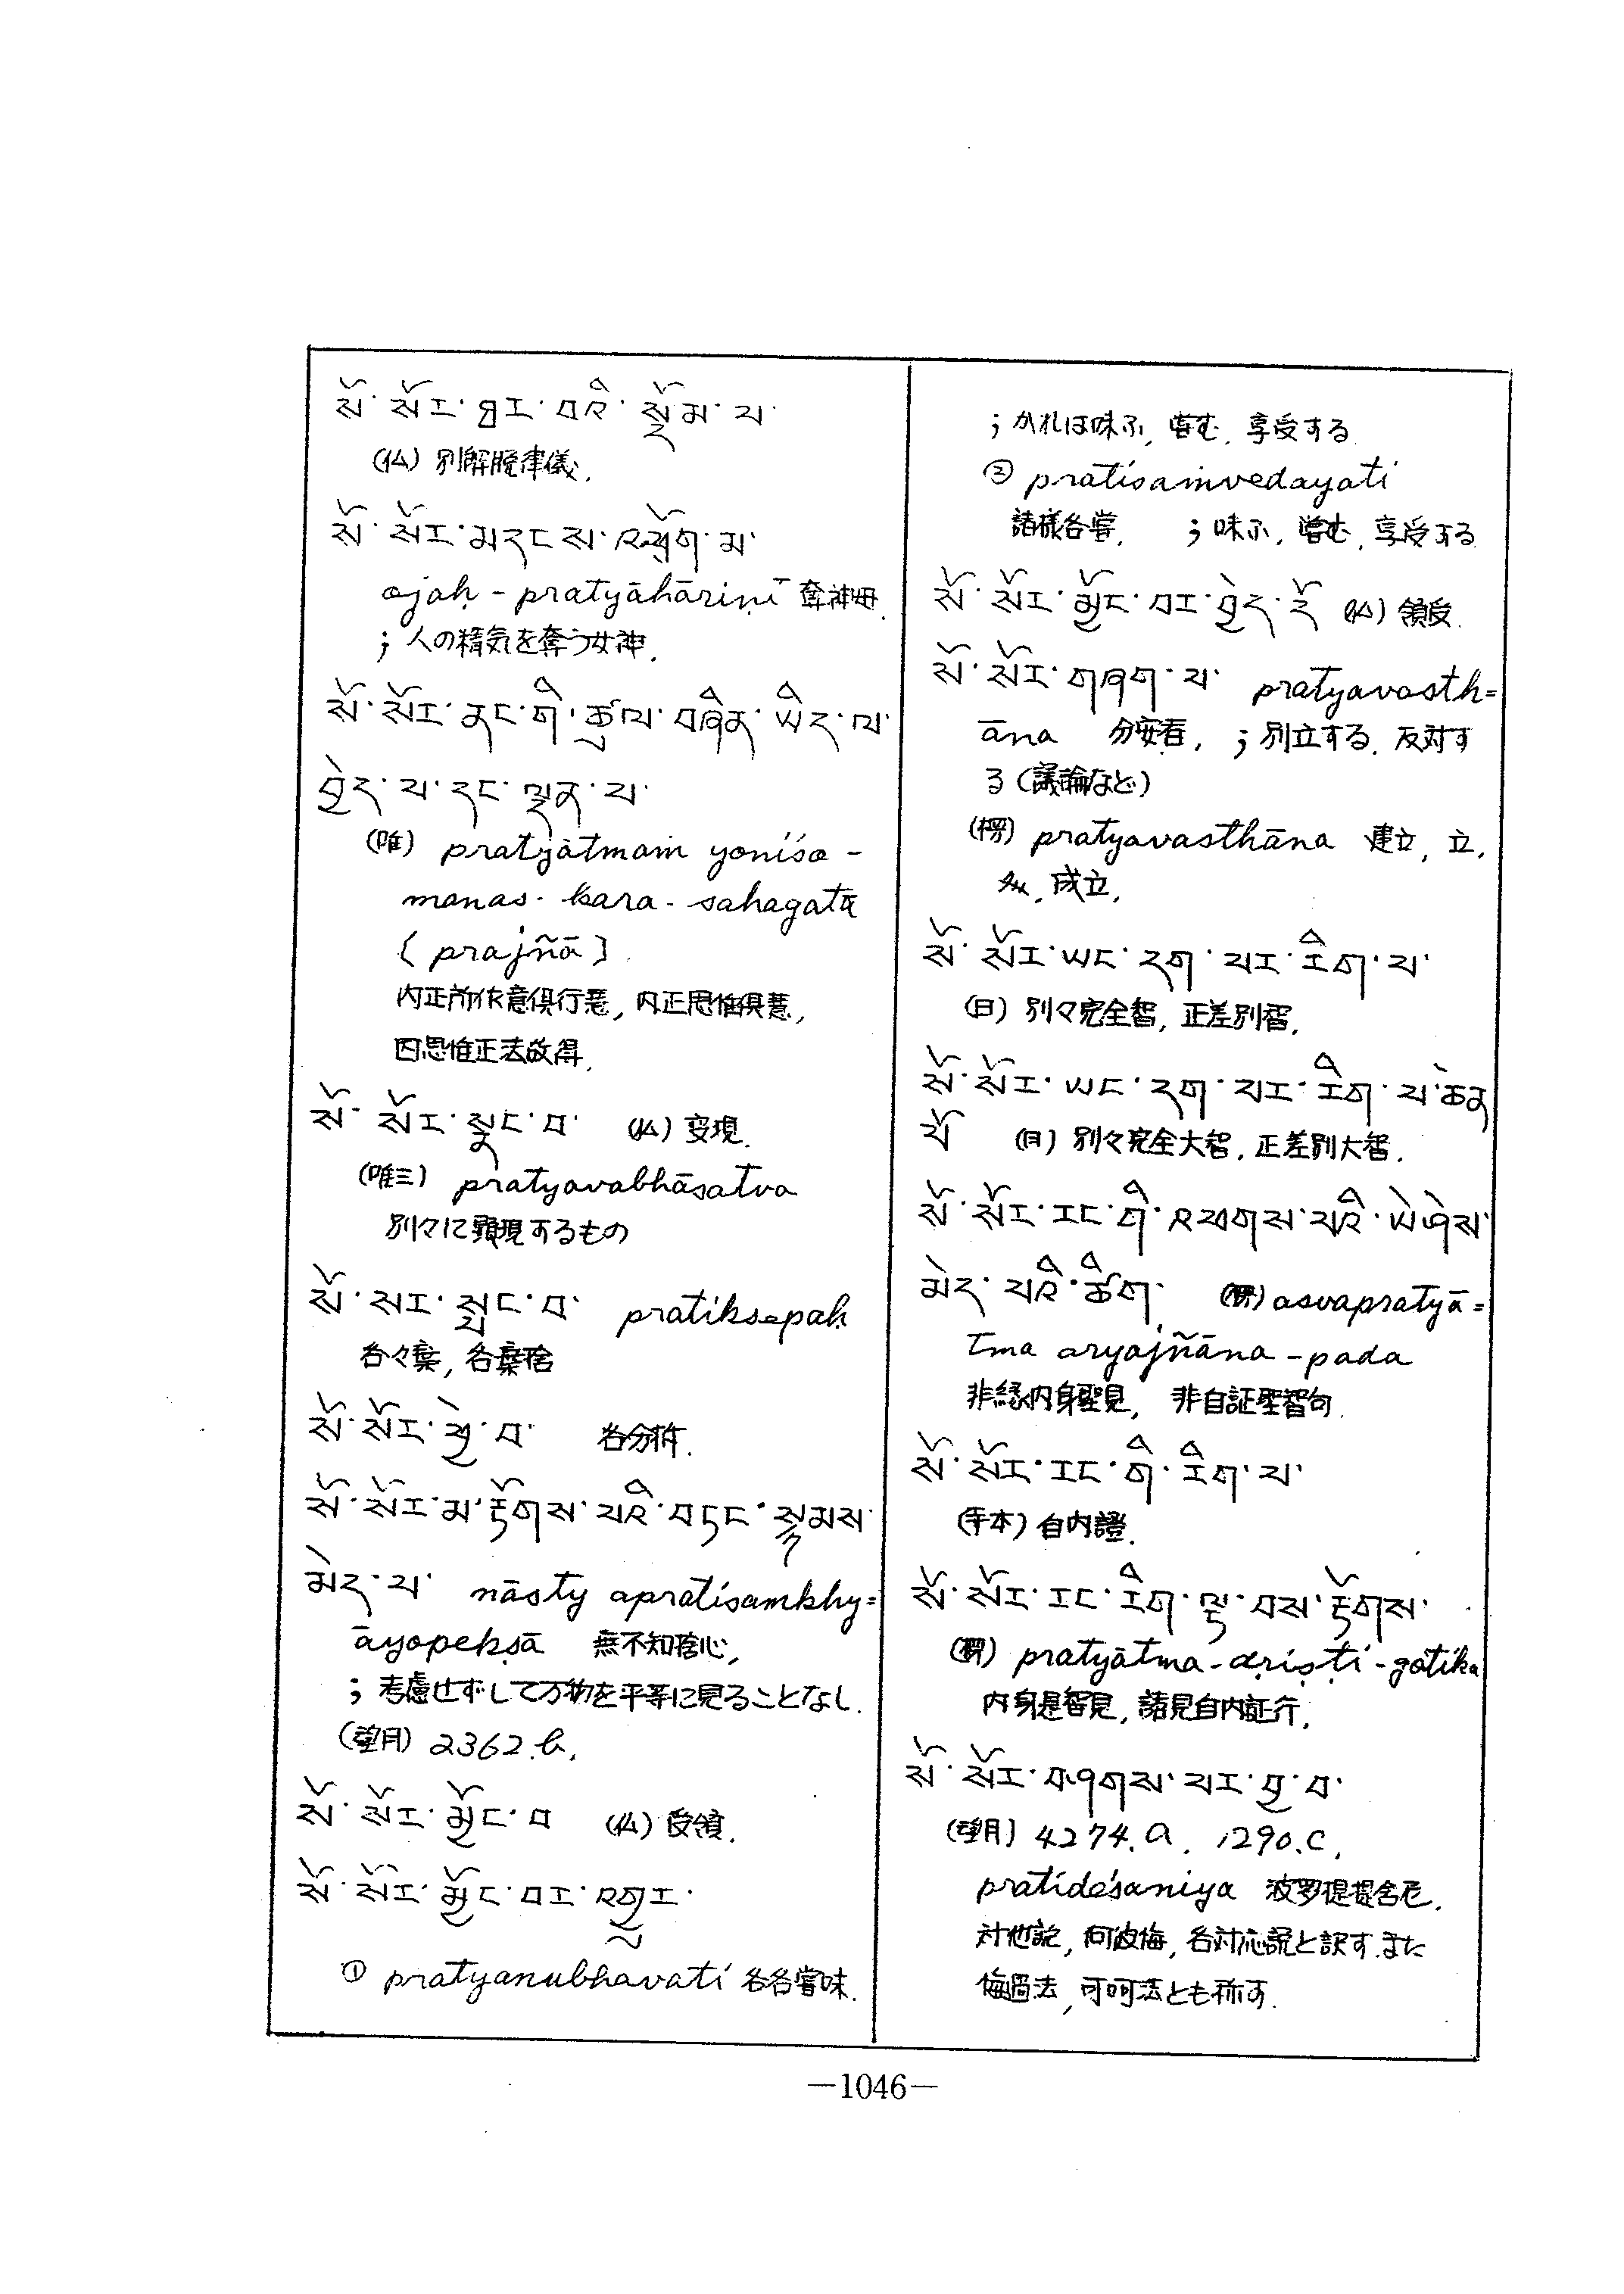 སོ་སོར་ཐར་བའི་སྡོམ་པ་
(仏) 別解脱律儀.
སོ་སོར་མདངས་འཕྲོག་མ་
ojaḥ - pratyāhāriṇī 奪神母.
; 人の精気を奪う女神.
སོ་སོར་ནང་གི་ཚུལ་བཞིན་ཡིད་ལ་
བྱེད་པ་དང་ལྡན་པ་
(唯) pratyātmaṁ yoniśo -
manas - kara - sahagatā
( prajñā ).
内正所作意俱行慧, 内正思惟俱慧,
因思惟正法故得.
སོ་སོར་སྣང་བ་ (仏) 変現.
(唯三) pratyavabhāsatva
別々に顕現するもの
སོ་སར་སྤང་བ་ pratiksepaḥ
各々棄, 各棄捨
སོ་སོར་ཕྱེ་བ་ 各分析.
སོ་སོར་མ་རྟོགས་པའི་བཏང་སྙོམས་
མེད་པ་ nāsty apratisamkhy=
āyopekṣā 無不知捨心,
; 考慮せずして万物を平等に見ることなし.
(望月) 2362.b.
སོ་སོར་མྱོང་བ (仏) 受領.
སོ་སོར་མྱོང་བར་འགྱུར་
① pratyanubhavati 各各嘗味.
; かれは味ふ, 嘗む, 享受する.
② pratisaṁvedayati
諸様各嘗, ; 味ふ, 嘗む, 享受する
སོ་སོར་མྱོང་བར་བྱེད་དོ (仏) 領受.
སོ་སོར་གཞག་པ་ pratyavasth=
āna 分安着, ; 別立する. 反対す
る (議論など)
(楞) pratyavasthāna 建立, 立,
成立,
སོ་སོར་ཡང་དག་པར་རིག་པ་
(日) 別々完全智, 正差別智.
སོ་སོར་ཡང་དག་པར་རིག་པ་ཆེན
པོ (日) 別々完全大智, 正差別大智.
སོ་སོར་རང་གི་འཕགས་པའི་ཡེ་ཤེས་
མེད་པའི་ཚིག་ (楞) asvapratyā=
tma aryajñāna - pada
非縁内身聖見, 非自証聖智句.
སོ་སོར་རང་གི་རིག་པ་
(手本) 自内證.
སོ་སོར་རང་རིག་ལྟ་བས་རྟོགས་
(楞) pratyātma - driṣṭi - gatika
内身是智見, 諸見自内証行.
སོ་སོར་བཤགས་པར་བྱ་བ་
(望月) 4274.a. 1290.c.
pratideśaniya 波罗提提舍尼.
対他説, 向彼悔, 各対応説と訳す. また
悔過法, 可呵法とも称す.
—1046—